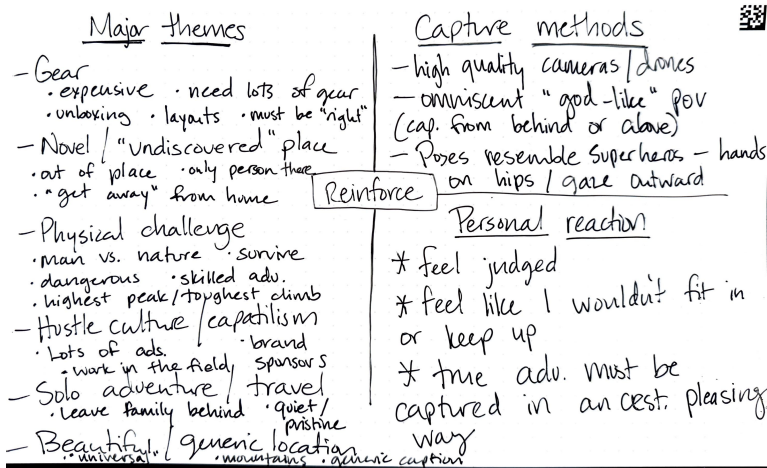 Major themes
- Gear
• expensive • need lots of gear
• unboxing • layouts • must be "right"
- Novel / "undiscovered" place
• out of place • only person there
• "get away" from home
- Physical challenge
• man vs. nature • survive
• dangerous • skilled adv.
• highest peak/toughest climb
- Hustle culture / capatilism
• Lots of ads. • brand sponsors
• work in the field
- Solo adventure / travel
• Leave family behind • quiet/pristine
- Beautiful / generic location
• "universal" • mountains • generic caption
Reinforce
Capture methods
- high quality cameras/drones
- omniscent "god-like" POV
(cap. from behind or above)
- Poses resemble Superheros - hands
on hips / gaze outward
Personal reaction
* feel judged
* feel like I wouldn't fit in
or keep up
* true adv. must be
captured in an aest. pleasing
way